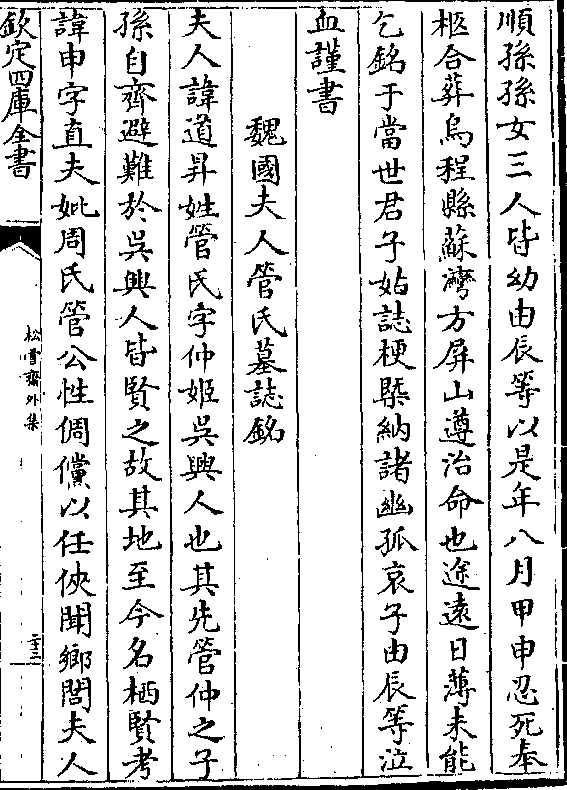 順孫孫女三人皆幼由辰等以是年八月甲申忍死奉
柩合葬烏程縣蘇灣方屏山遵治命也途遠日薄未能
乞銘于當世君子姑誌梗槩納諸幽孤哀子由辰等泣
血謹書
魏國夫人管氏墓誌銘
夫人諱道昇姓管氏字仲姬吳興人也其先管仲之子
孫自齊避難於吳興人皆賢之故其地至今名栖賢考
諱申字直夫妣周氏管公性倜儻以任俠聞鄉閭夫人
欽定四庫全書
松雪齋外集
二十三